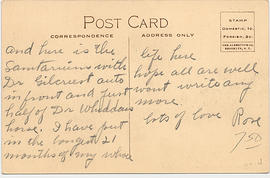 POST CARD
CORRESPONDENCE
ADDRESS ONLY
STAMP
DOMESTIC, 1c.
FOREIGN, 2c.
and here is the
Sanitarium with
Dr Gilcrest auto
in front and just
half of Dr
horse. I have put
in the longest 21
months of my whole
life here
hope all are well
wont write any
more.
lots of love Rose